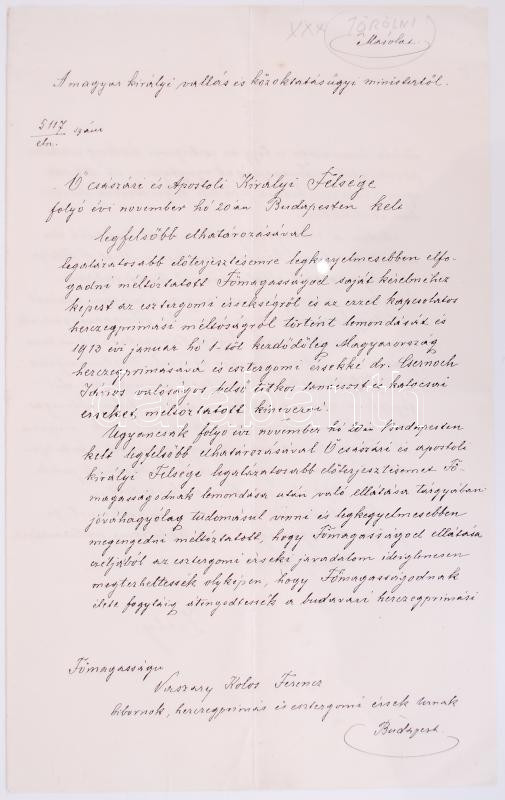 XXX TÖRÖLNI
Másolat.
A magyar királyi vallás és közoktatásügyi ministertől.
5117 szám
eln.
Ő császári és Apostoli Királyi Felsége
folyó évi november hó 20án Budapesten kelt
legfelsőbb elhatározásával
legalázatosabb előterjesztésemre legkegyelmesebben elfo-
gadni méltóztatott Főmagasságod saját kérelméhez
képest az esztergomi érsekségről és az ezzel kapcsolatos
herczegprimási méltóságról történt lemondását és
1913 évi január hó 1-től kezdődőleg Magyarország
herczegprimásává és esztergomi érsekké dr. Csernoch
János valóságos belső titkos tanácsost és kalocsai
érseket, méltóztatott kinevezni.
Ugyancsak folyó évi november hó 20án Budapesten
kelt legfelsőbb elhatározásával Ő császári és apostoli
királyi Felsége legalázatosabb előterjesztésemet Fő-
magasságodnak lemondása után való ellátása tárgyában
jóváhagyólag tudomásul venni és legkegyelmesebben
megengedni méltóztatott, hogy Főmagasságod ellátása
czéljából az esztergomi érseki javadalom ideiglenesen
megterheltessék olyképen, hogy Főmagasságodnak
élete fogytáig átengedtessék a budavári herczegprimási
Főmagasságu
Vaszary Kolos Ferencz
bibornok, herczegprimás és esztergomi érsek urnak
Budapest.
darabanth